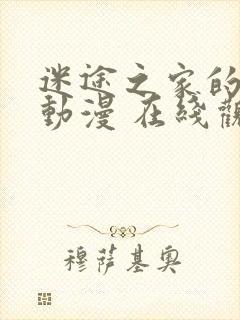 迷途之家的
動漫 在綫觀
穆薩基奧